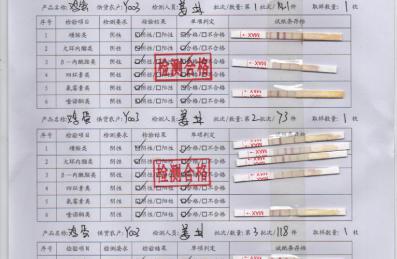 产品名称: 鸡蛋 供货农户: Y003 检测人员: 批次/数量: 第 1 批次/ 141 件 取样数量: 1 枚
序号 检验项目 检测要求 检验结果 单项判定 试纸条存样
1 磺胺类 阴性 ☑阴性/□阳性 ☑合格/□不合格
2 大环内酯类 阴性 ☑阴性/□阳性 ☑合格/□不合格
3 β-内酰胺类 阴性 ☑阴性/□阳性 ☑合格/□不合格
4 四环素类 阴性 ☑阴性/□阳性 ☑合格/□不合格
5 氟喹类 阴性 ☑阴性/□阳性 ☑合格/□不合格
6 喹诺酮类 阴性 ☑阴性/□阳性 ☑合格/□不合格
检测合格
MAX
产品名称: 鸡蛋 供货农户: Y002 检测人员: 批次/数量: 第 2 批次/ 73 件 取样数量: 1 枚
序号 检验项目 检测要求 检验结果 单项判定 试纸条存样
1 磺胺类 阴性 ☑阴性/□阳性 ☑合格/□不合格
2 大环内酯类 阴性 ☑阴性/□阳性 ☑合格/□不合格
3 β-内酰胺类 阴性 ☑阴性/□阳性 ☑合格/□不合格
4 四环素类 阴性 ☑阴性/□阳性 ☑合格/□不合格
5 氟喹类 阴性 ☑阴性/□阳性 ☑合格/□不合格
6 喹诺酮类 阴性 ☑阴性/□阳性 ☑合格/□不合格
检测合格
MAX
产品名称: 鸡蛋 供货农户: Y002 检测人员: 批次/数量: 第 3 批次/ 118 件 取样数量: 1 枚
序号 检验项目 检测要求 检验结果 单项判定 试纸条存样